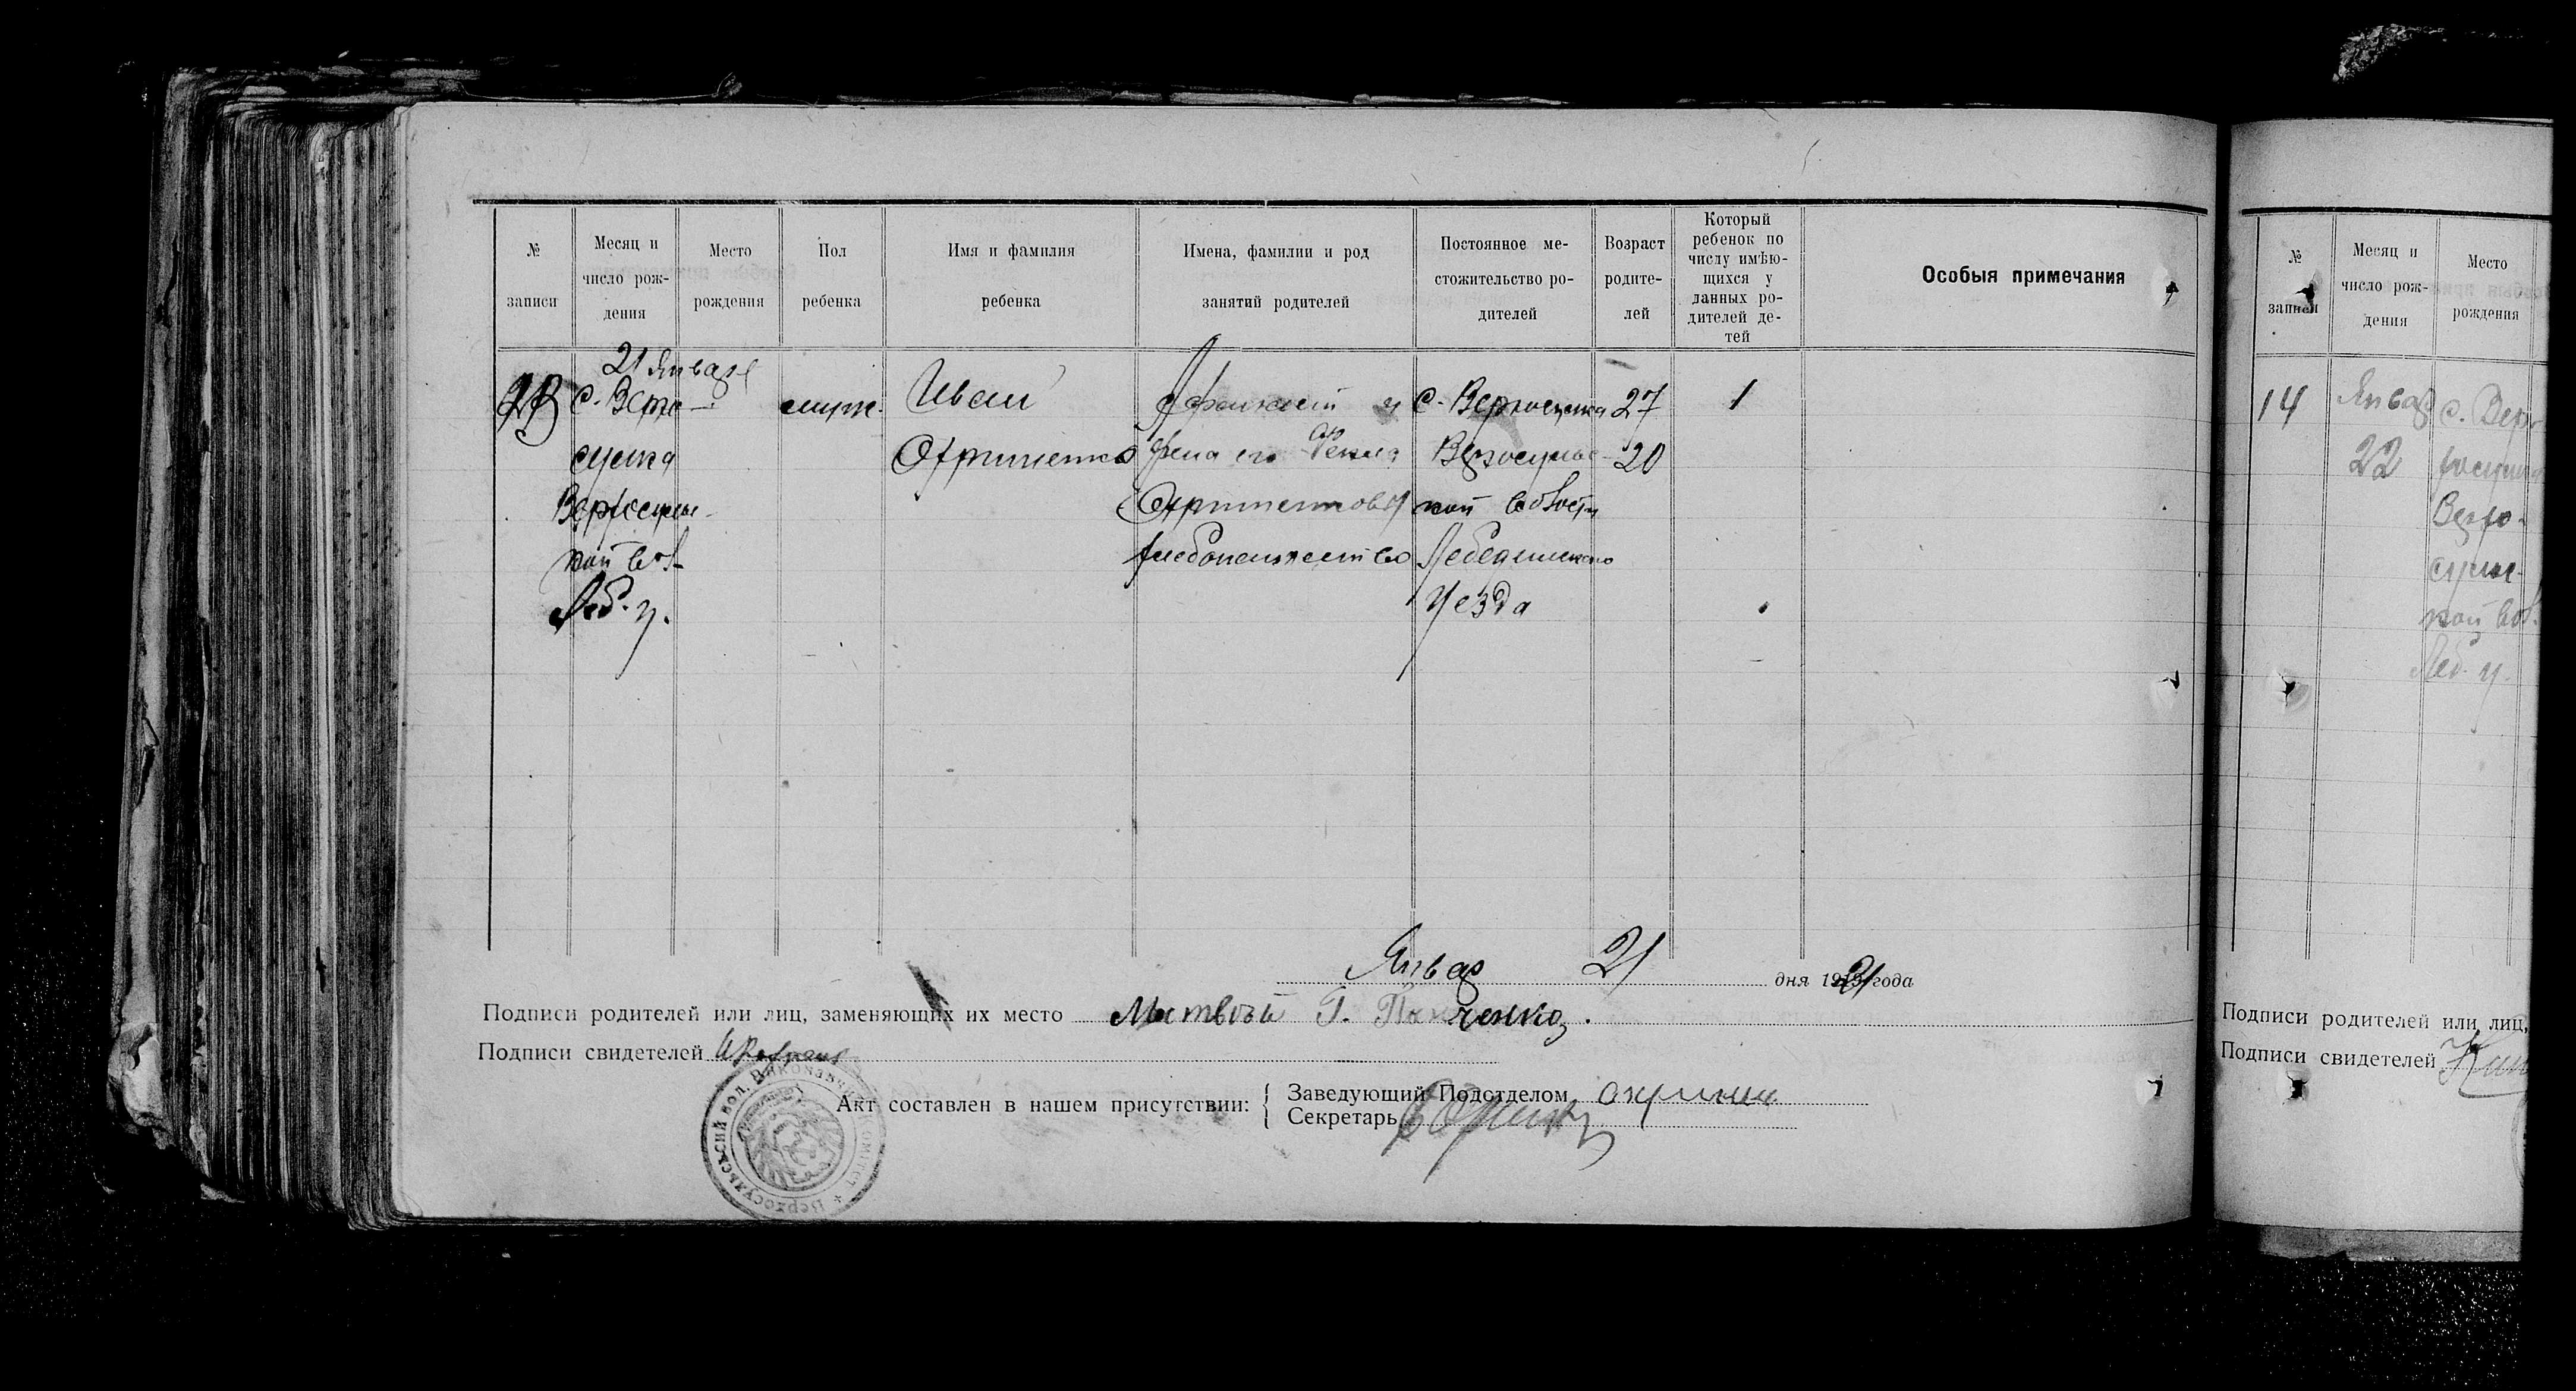 № записи
Месяц и число рождения
Место рождения
Пол ребенка
Имя и фамилия ребенка
Имена, фамилии и род занятий родителей
Постоянное местожительство родителей
Возраст родителей
Который ребенок по числу имѣющихся у данных родителей детей
Особыя примечания
21 Января
с. Верхо-
сулка
Верхосульс-
кой вол.
Леб. у.
муж.
Иван
и
жена его Фекла
хлебопашество
с. Верхосулка
Верхосульс-
кой волости
Лебединского
Уезда
27
20
1
Январ 21 дня 1921 года
Подписи родителей или лиц, заменяющих их место
Подписи свидетелей
Акт составлен в нашем присутствии:
Заведующий Подотделом
Секретарь
Верхосульський вол. Виконавчий Комітет
№ записи
Месяц и число рождения
Место рождения
14
Январ
22
с. Верхо-
сулка
Верхо-
сульс-
кой вол.
Леб. у.
Подписи родителей или лиц,
Подписи свидетелей